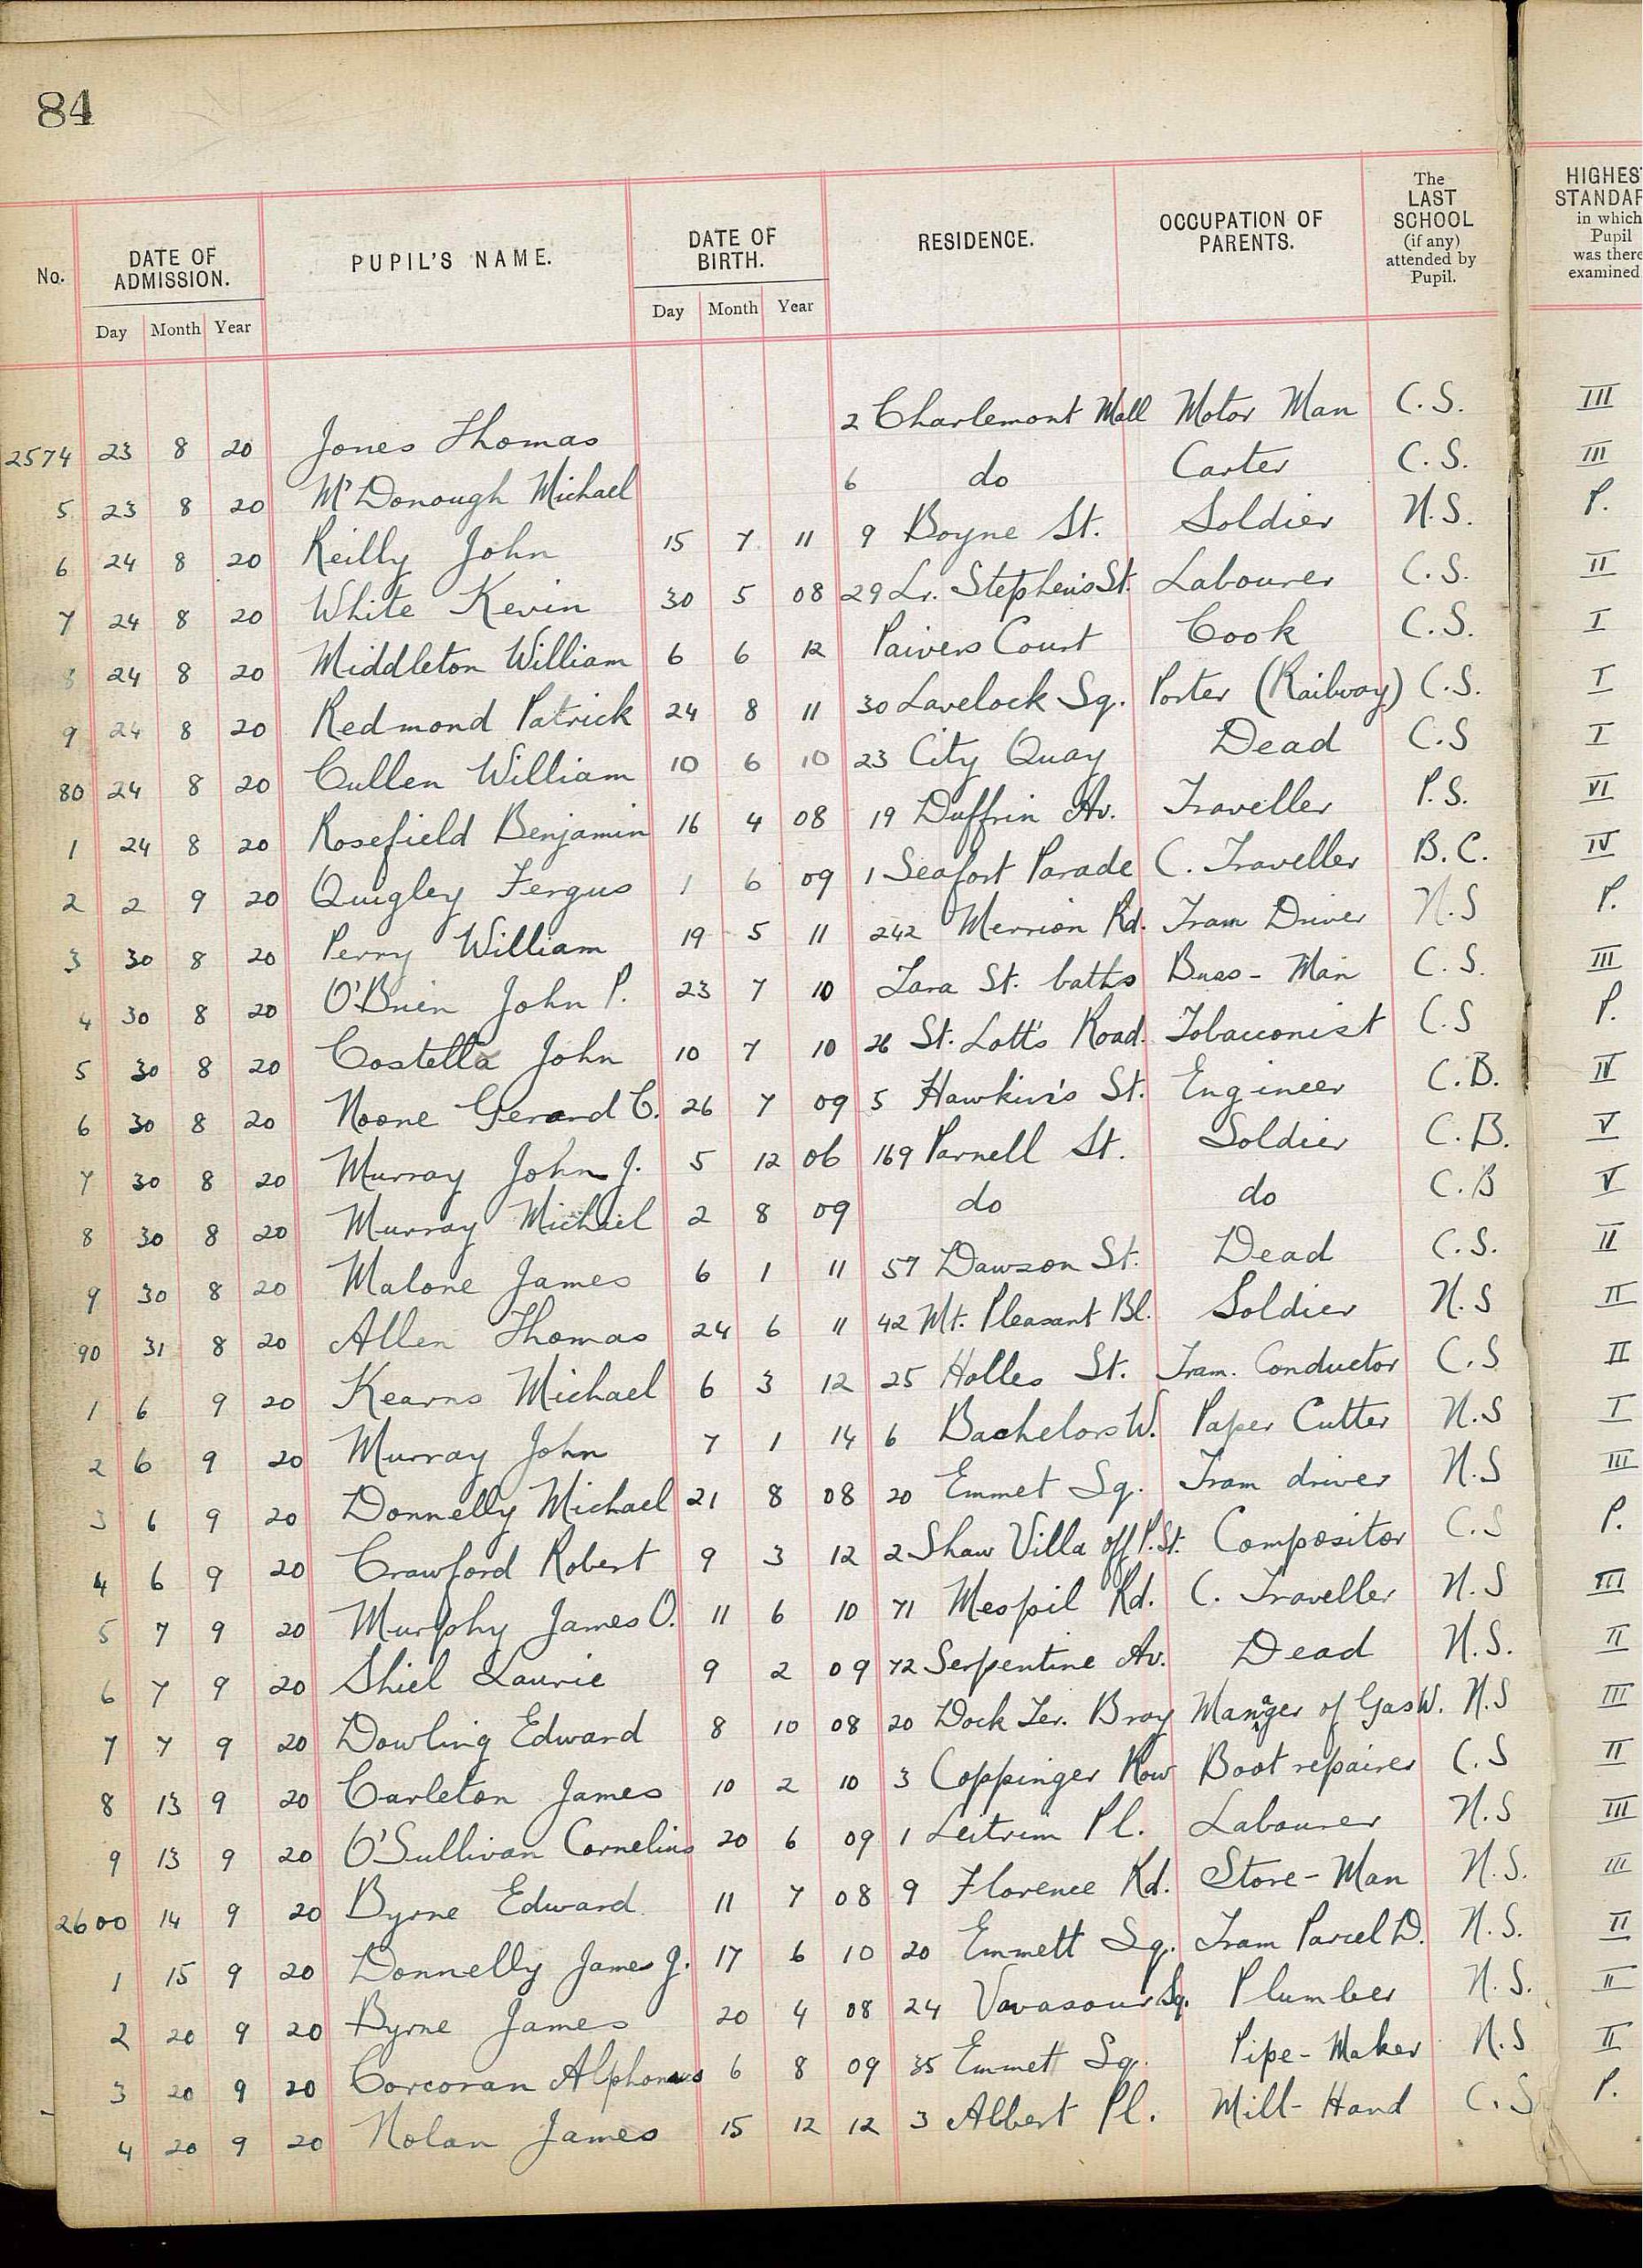 84
No. DATE OF ADMISSION. PUPIL'S NAME. DATE OF BIRTH. RESIDENCE. OCCUPATION OF PARENTS. The LAST SCHOOL (if any) attended by Pupil. HIGHES STANDAR in which Pupil was there examined
Day Month Year Day Month Year
2574 23 8 20 Jones Thomas 2 Charlemont Mall Motor Man C.S. III
5 23 8 20 McDonough Michael 6 do Carter C.S. III
6 24 8 20 Reilly John 15 7 11 9 Boyne St. Soldier N.S. P.
7 24 8 20 White Kevin 30 5 08 29 Lr. Stephen's St. Labourer C.S. II
8 24 8 20 Middleton William 6 6 12 Paivers Court Cook C.S. I
9 24 8 20 Redmond Patrick 24 8 11 30 Lavelock Sq. Porter (Railway) C.S. I
80 24 8 20 Cullen William 10 6 10 23 City Quay Dead C.S I
1 24 8 20 Rosefield Benjamin 16 4 08 19 Duffrin Av. Traveller P.S. VI
2 2 9 20 Quigley Fergus 1 6 09 1 Seafort Parade C. Traveller B.C. IV
3 30 8 20 Perry William 19 5 11 242 Merrion Rd. Tram Driver N.S P.
4 30 8 20 O'Brien John P. 23 7 10 Tara St. baths Buss-Man C.S. III
5 30 8 20 Costella John 10 7 10 26 St. Lott's Road. Tobacconist C.S P.
6 30 8 20 Noone Gerard C. 26 7 09 5 Hawkin's St. Engineer C.B. IV
7 30 8 20 Murray John J. 5 12 06 169 Parnell St. Soldier C.B. V
8 30 8 20 Murray Michael 2 8 09 do do C.B V
9 30 8 20 Malone James 6 1 11 57 Dawson St. Dead C.S. II
90 31 8 20 Allen Thomas 24 6 11 42 Mt. Pleasant Bl. Soldier N.S II
1 6 9 20 Kearns Michael 6 3 12 25 Holles St. Tram. Conductor C.S II
2 6 9 20 Murray John 7 1 14 6 Bachelors W. Paper Cutter N.S I
3 6 9 20 Donnelly Michael 21 8 08 20 Emmet Sq. Tram driver N.S III
4 6 9 20 Crawford Robert 9 3 12 2 Shaw Villa off P. St. Compositor C.S P.
5 7 9 20 Murphy James O. 11 6 10 71 Mespil Rd. C. Traveller N.S III
6 7 9 20 Shiel Laurie 9 2 09 72 Serpentine Av. Dead N.S. II
7 7 9 20 Dowling Edward 8 10 08 20 Dock Ter. Bray Manager of Gas W. N.S III
8 13 9 20 Carleton James 10 2 10 3 Coppinger Row Boot repairer C.S II
9 13 9 20 O'Sullivan Cornelius 20 6 09 1 Leitrim Pl. Labourer N.S III
2600 14 9 20 Byrne Edward 11 7 08 9 Florence Rd. Store-Man N.S. III
1 15 9 20 Donnelly James J. 17 6 10 20 Emmett Sq. Tram Parcel D. N.S. II
2 20 9 20 Byrne James 20 4 08 24 Vavasour Sq. Plumber N.S. II
3 20 9 20 Corcoran Alphonsus 6 8 09 35 Emmett Sq. Pipe-Maker N.S II
4 20 9 20 Nolan James 15 12 12 3 Albert Pl. Mill-Hand C.S P.